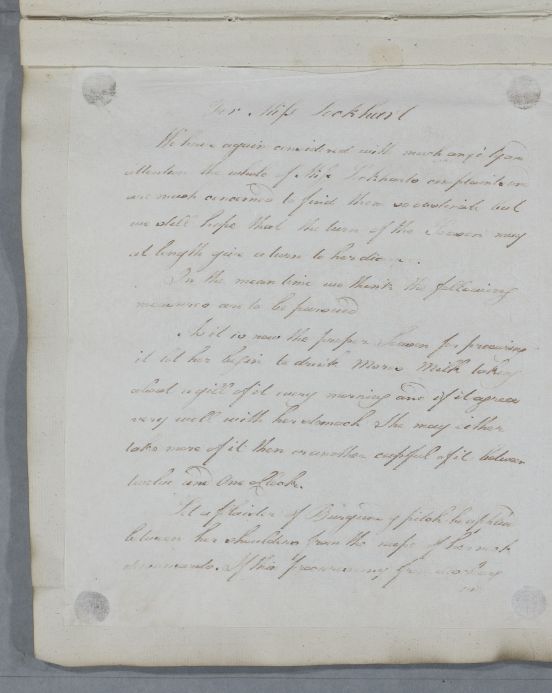 For Miss Lockhart
We have again considered with much anxiety and
attention the whole of Miss Lockharts complaints and
are much concerned to find them so obstinate but
we still hope that the turn of the Season may
at length give a turn to her
In the mean time we think the following
measures are to be pursued
As it is now the proper Season for procuring
it let her begin to drink Mares Milk taking
about a gill of it every morning and if it agrees
very well with her stomach She may either
take more of it then or another cupfull of it between
twelve and One oClock.
Let a plaister of Burgundy pitch be
between her shoulders from the nape of her neck
downwards. If this